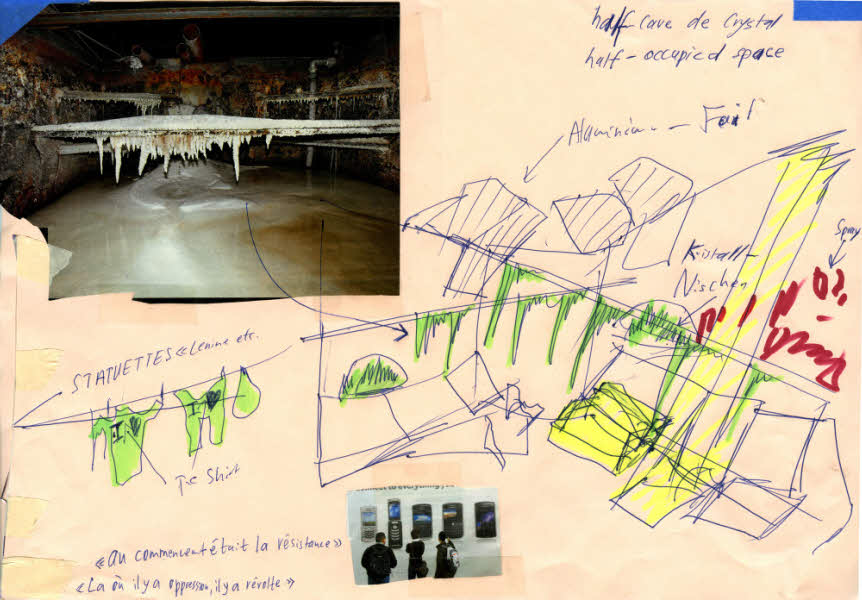 half cave de Crystal
half-occupied space
Aluminium
Spray
Kristall-
Nischen
STATUETTES «Lenine etc.
I
I
T-e Shirt
«Au commencent était la résistance»
«La où il y a oppression, il y a révolte»